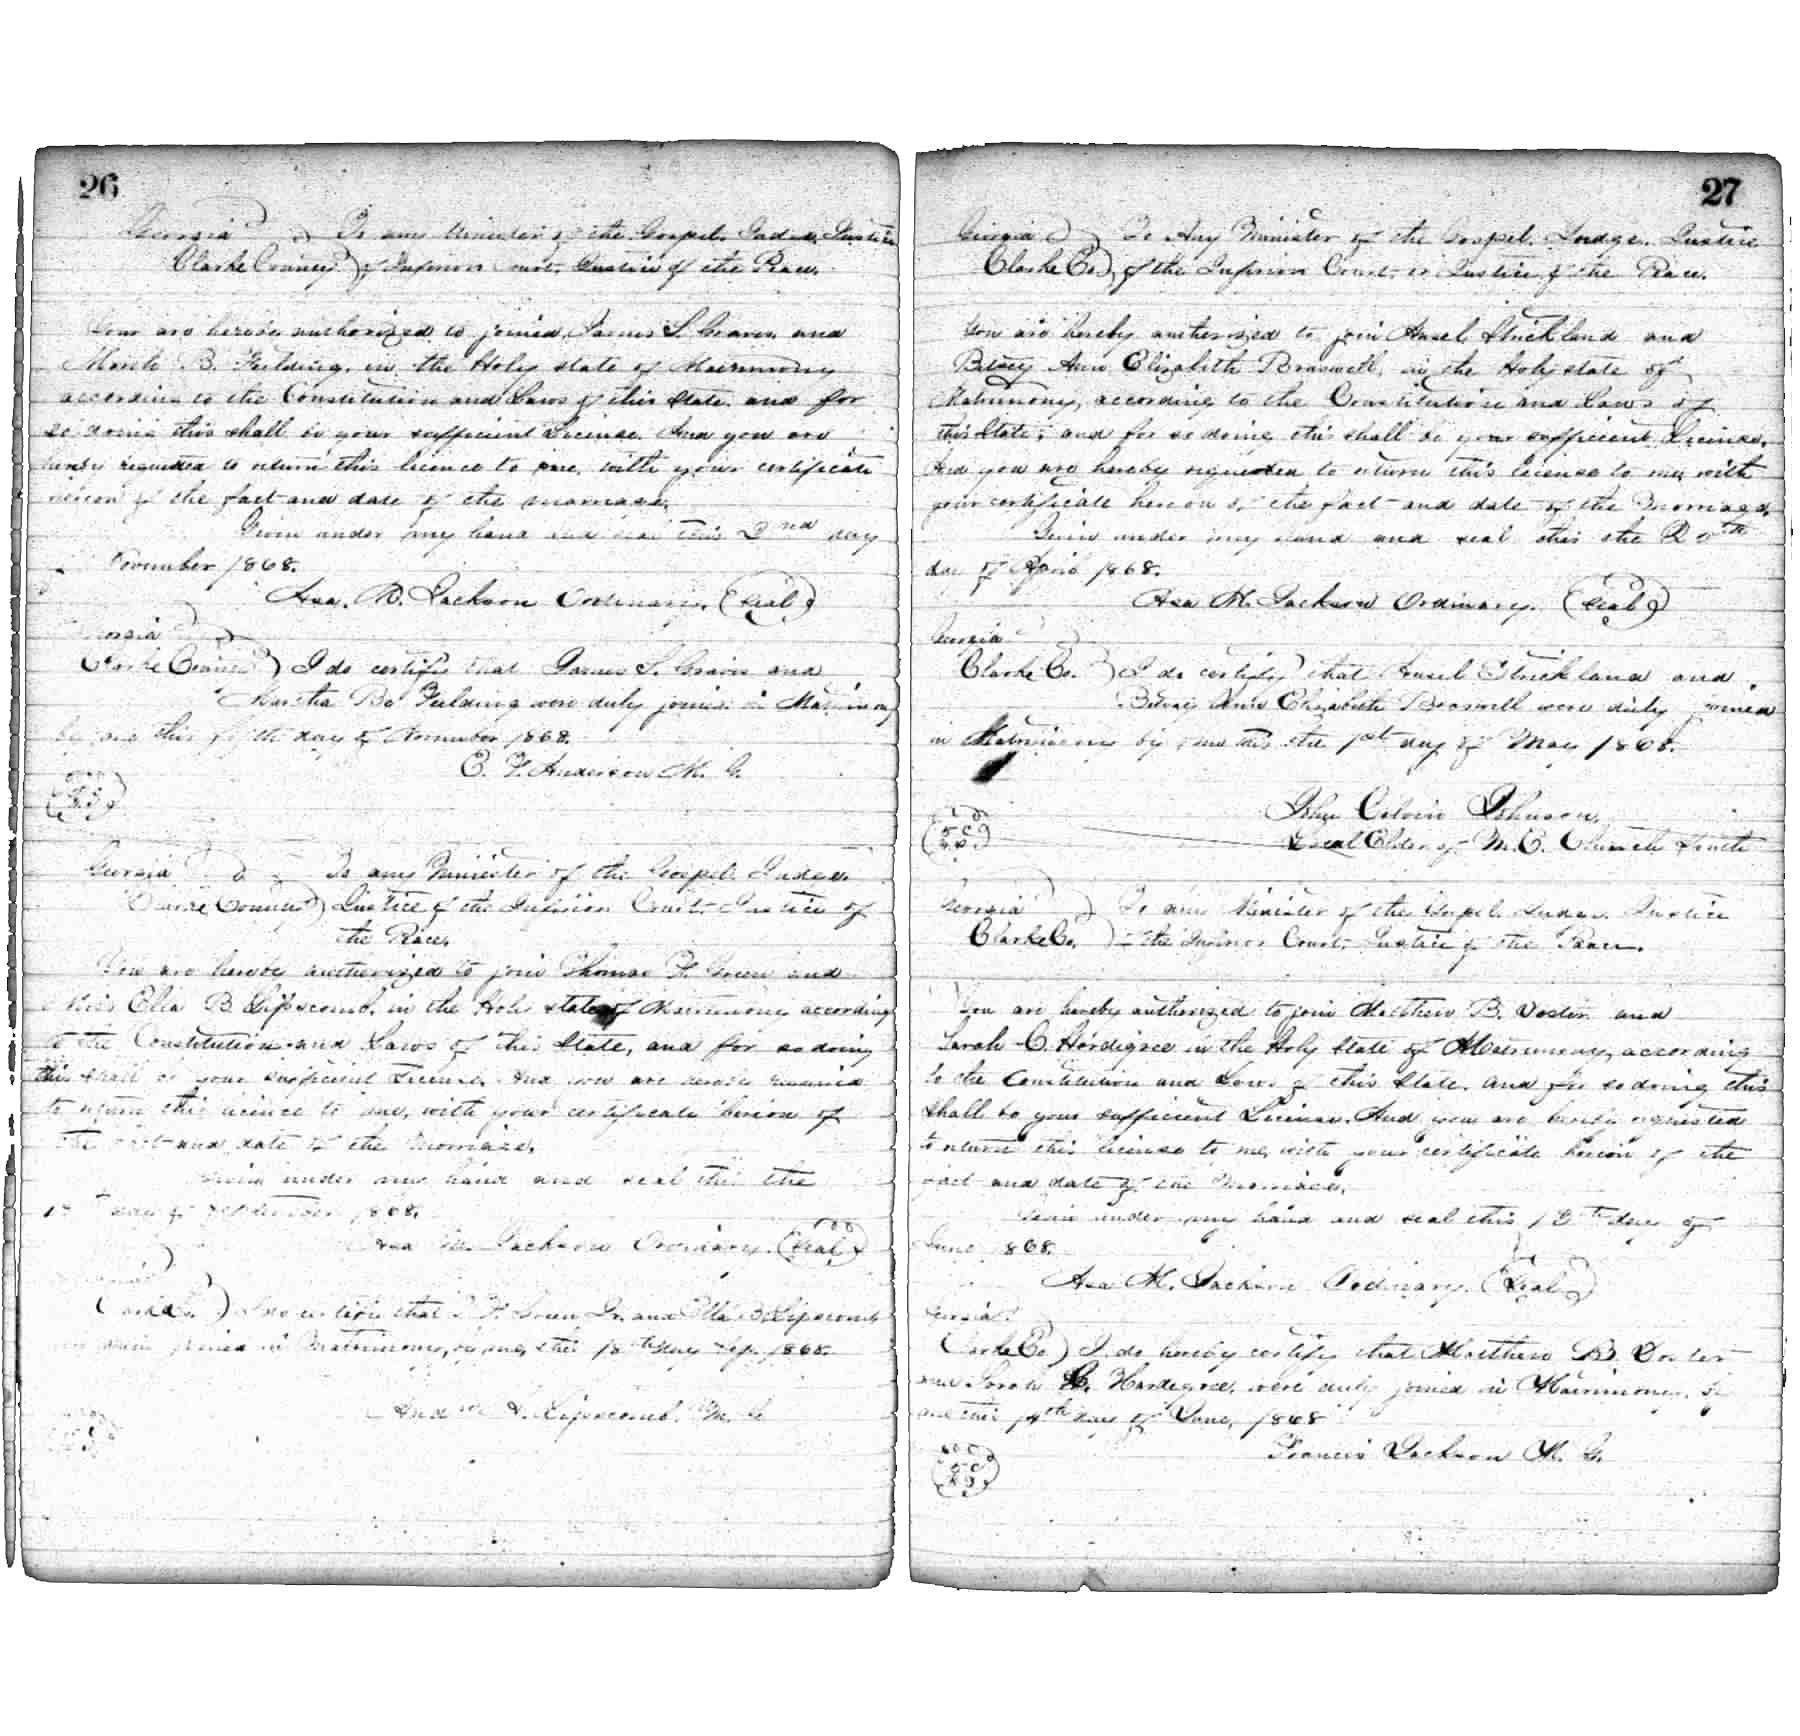 26
Georgia To any Minister of the Gospel, Judge, Justice
Clarke County of Inferior Court, Justice of the Peace.
Your are hereby authorized to joined James S. Graves and
B. Fielding, in the Holy state of Matrimony
according to the Constitution and Laws of this State, and for
so doing this shall be your sufficient License. And you are
hereby requested to return this licence to me, with your certificate
hereon of the fact and date of the marriage.
Given under my hand and seal this 2nd day
November 1868.
Asa. M. Jackson Ordinary. (Seal)
Georgia
Clarke County I do certify that James S. Graves and
Martha B. Fielding were duly joined in Matrimony
by me this day of November 1868.
E. F. Anderson M. G.
Georgia To any Minister of the Gospel, Judge,
Clarke County Justice of the Inferior Court, Justice of
the Peace.
You are hereby authorized to join Thomas F. Green and
Miss Ella B Lipscomb, in the Holy state of Matrimony according
to the Constitution and Laws of this State, and for so doing
this shall be your sufficient License. And you are hereby required
to return this licence to me, with your certificate hereon of
the fact and date of the marriage.
Given under my hand and seal this the
day of September 1868.
Asa M. Jackson Ordinary. (Seal)
Georgia
Clarke Co. I do certify that T. F. Green Jr. and Ella B Lipscomb
were duly joined in Matrimony, by me, this 18th day Sep. 1868.
And w A. Lipscomb. M. G
27
Georgia To Any Minister of the Gospel, Judge, Justice
Clarke Co. of the Inferior Court, or Justice of the Peace.
You are hereby authorized to join Hasel Strickland and
Betsey Ann Elizabeth Braswell, in the Holy state of
Matrimony, according to the Constitution and Laws of
this State; and for so doing this shall be your sufficient License.
And you are hereby requested to return this license to me, with
your certificate hereon of the fact and date of the Marriage.
Given under my hand and seal this the 20th
day of April 1868.
Asa M. Jackson Ordinary. (Seal)
Georgia
Clarke Co. I do certify that Hasel Strickland and
Betsey Ann Elizabeth Braswell were duly joined
in Matrimony by me this the 1st day of May 1868.
John Calvin Johnson,
Local Elder of M. E. Church South
Georgia To any Minister of the Gospel, Judge, Justice
Clarke Co. of the Inferior Court, Justice of the Peace.
You are hereby authorized to join Matthew B. Doster and
Sarah C. Hardigree in the Holy State of Matrimony, according
to the Constitution and Laws of this State. And for so doing this
shall be your sufficient License. And you are hereby requested
to return this license to me, with your certificate hereon of the
fact and date of the Marriage.
Given under my hand and seal this 13th day of
June 1868.
Asa M. Jackson Ordinary. (Seal)
Georgia
Clarke Co I do hereby certify that Matthew B. Doster
and Sarah C. Hardigree, were duly joined in Matrimony, by
me this 14th day of June, 1868
Francis Jackson M. G.